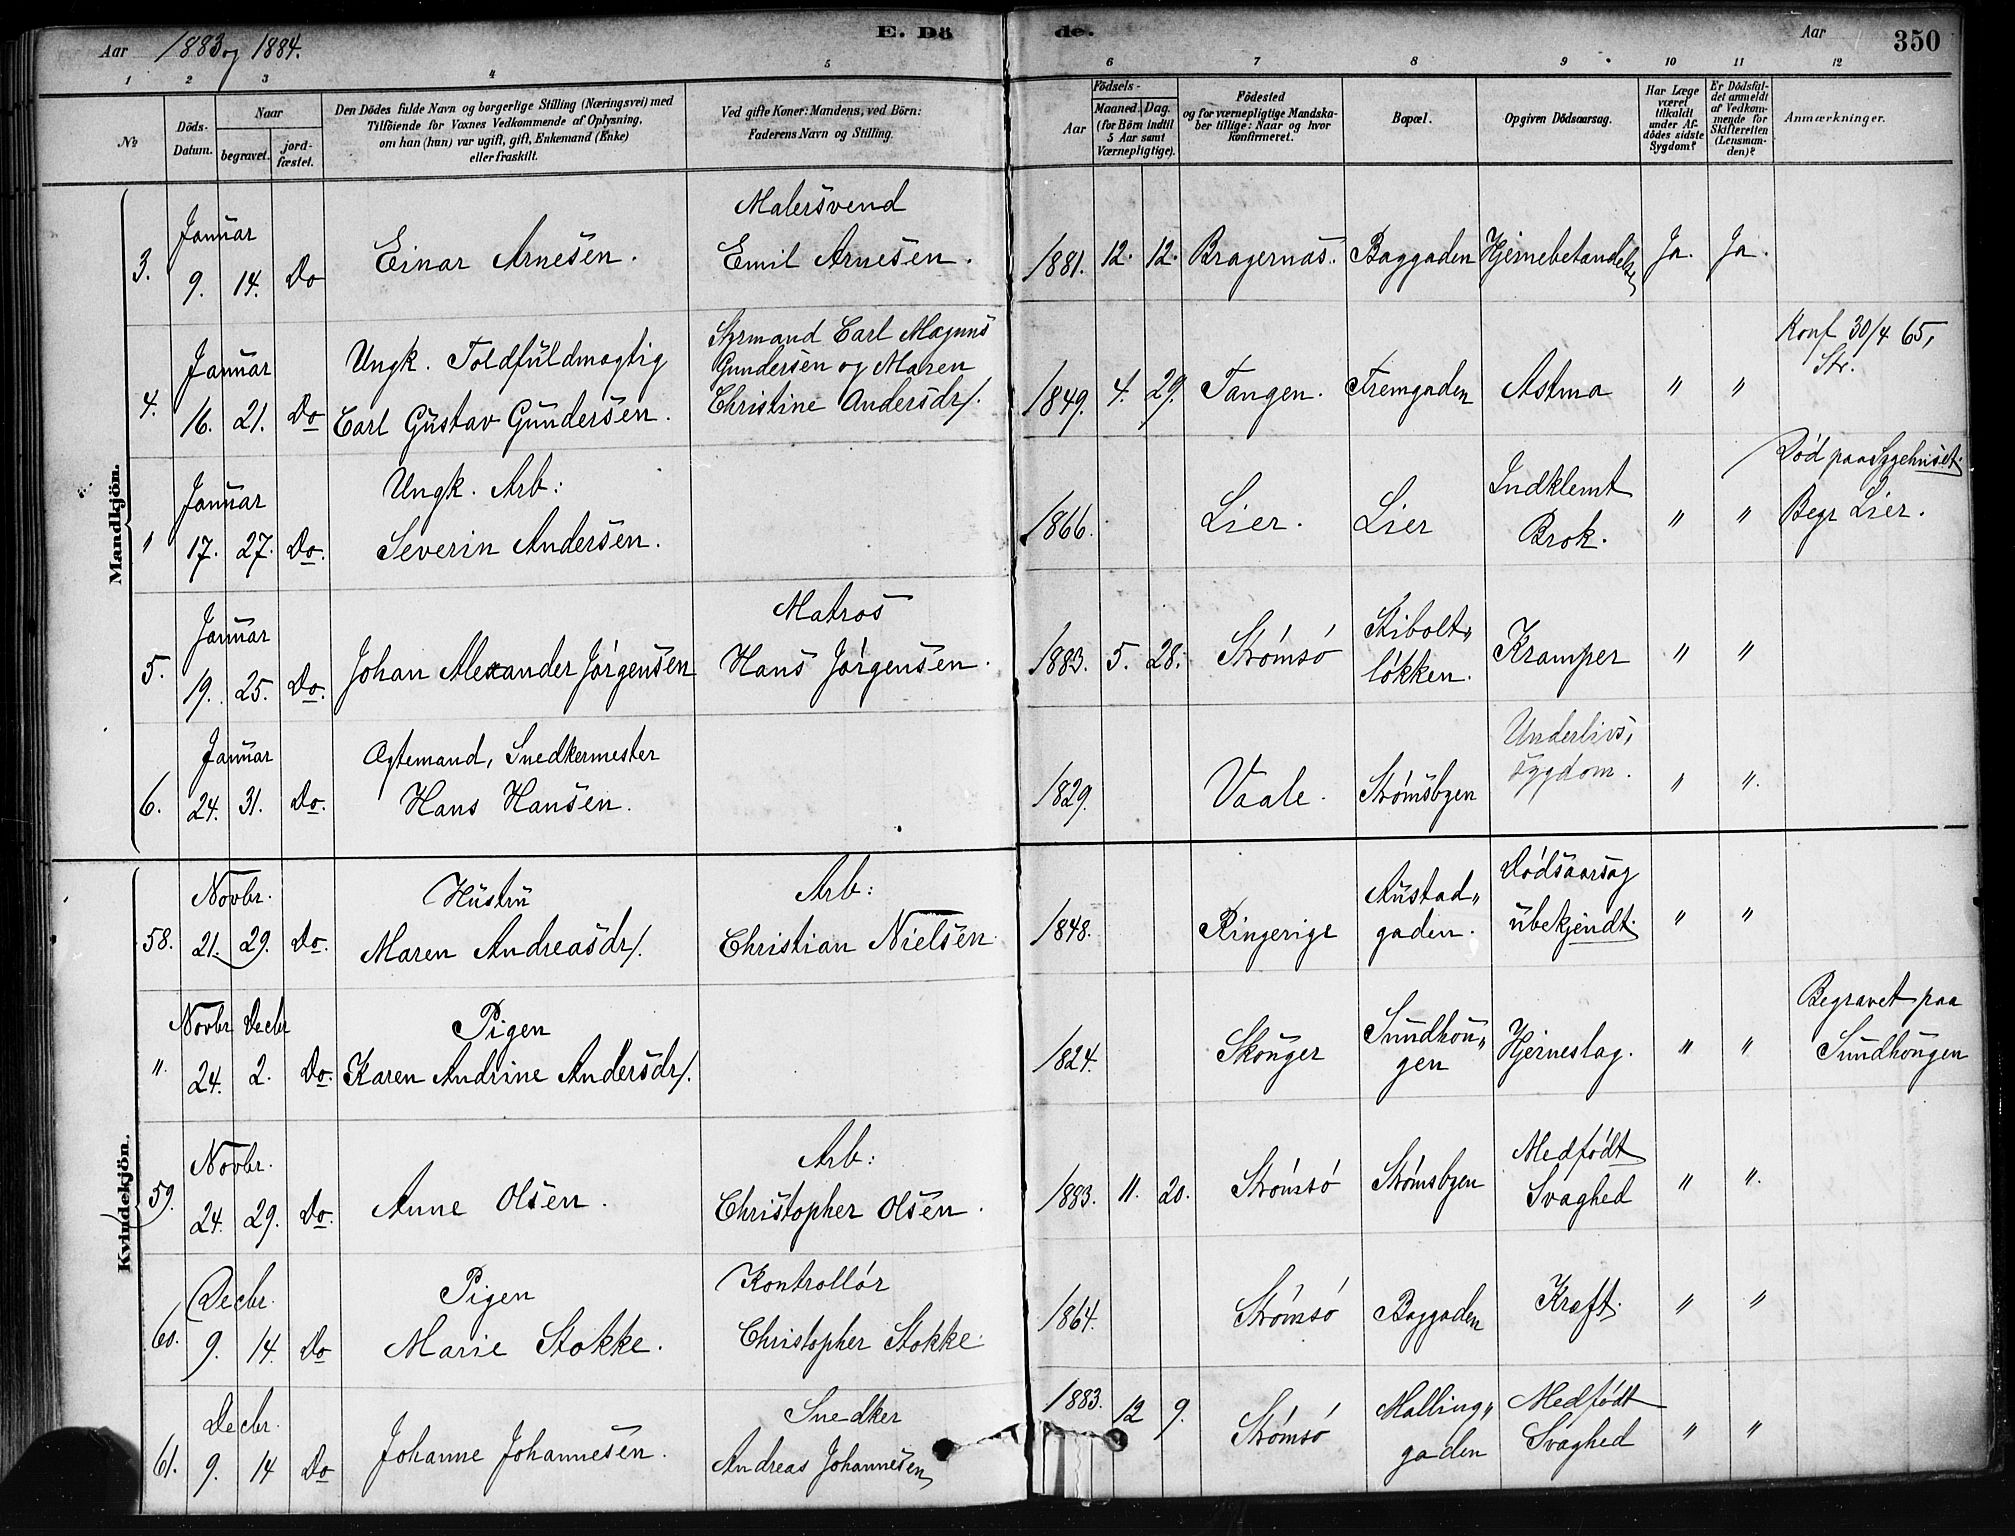 Aar 1883 og 1884.
E. Dö
de.
Aar
350
1 2 3 4 5 6 7 8 9 10 11 12
No
Döds-
Datum.
Naar
begravet.
jord-
fæstet.
Den Dödes fulde Navn og borgerlige Stilling (Næringsvei) med
Tilföiende for Voxnes Vedkommende af Oplysning,
om han (hun) var ugift, gift, Enkemand (Enke)
eller fraskilt.
Ved gifte Koner: Mandens, ved Börn:
Faderens Navn og Stilling.
Födsels-
Aar
Maaned.
Dag.
(for Börn indtil
5 Aar samt
Værnepligtige).
Födested
og for værnepligtige Mandska-
ber tillige: Naar og hvor
konfirmeret.
Bopæl.
Opgiven Dödsaarsag.
Har Læge
været
tilkaldt
under Af-
dödes sidste
Sygdom?
Er Dödsfal-
det anmeldt
af Vedkom-
mende for
Skifteretten
(Lensman-
den)?
Anmærkninger.
Mandkjön.
Januar
3. 9. 14. Do
Einar Arnesen.
Malersvend
Emil Arnesen.
1881. 12. 12. Bragernæs. Baggaden Hjernebetændelse Ja. Ja.
Januar
4. 16. 21. Do
Ungk. Toldfuldmægtig
Carl Gustav Gundersen.
Styrmand Carl Magnus
Gundersen og Maren
Christine Andersdr/.
1849. 4. 29. Tangen. Fremgaden Astma " "
Konf 30/4 65,
Str.
Januar
" 17. 27. Do.
Ungk. Arb:
Severin Andersen.
1866. Lier. Lier
Indklemt
Brok.
" "
Död paa Sygehuset.
Begr Lier.
Januar
5. 19. 25. Do.
Johan Alexander Jörgensen
Matros
Hans Jörgensen.
1883. 5. 28. Strömsö
Stibolt"
lökken.
Kramper " "
Januar
6. 24. 31. Do.
Ægtemand, Snedkermester
Hans Hansen.
1829. Vaale. Strömsbyen
Underlivs,
sygdom.
" ".
Kvindekjön.
Novbr.
58. 21. 29. Do.
Hustru
Maren Andreasdr/.
Arb:
Christian Nielsen
1848. Ringerige
Austad"
gaden.
Dödsaarsag
übekjendt.
" "
Novbr Decbr
". 24. 2. Do.
Pigen
Karen Andrine Andersdr/.
1824. Skouger
Sundhou"
gen
Hjerneslag. " "
Begravet paa
Sundhougen
Novbr.
59. 24. 29. Do.
Anne Olsen.
Arb:
Christopher Olsen.
1883. 11. 20. Strömsö Strömsbyen
Medfödt
Svaghed
" ".
Decbr.
60. 9. 14. Do
Pigen
Marie Stokke.
Kontrollör
Christopher Stokke.
1864. Strömsö Baggaden Kræft. " "
Decbr.
61. 9. 14 Do
Johanne Johannesen.
Snedker
Andreas Johannesen
1883. 12 9. Strömsö
Malling"
gaden
Medfödt
Svaghed
" "